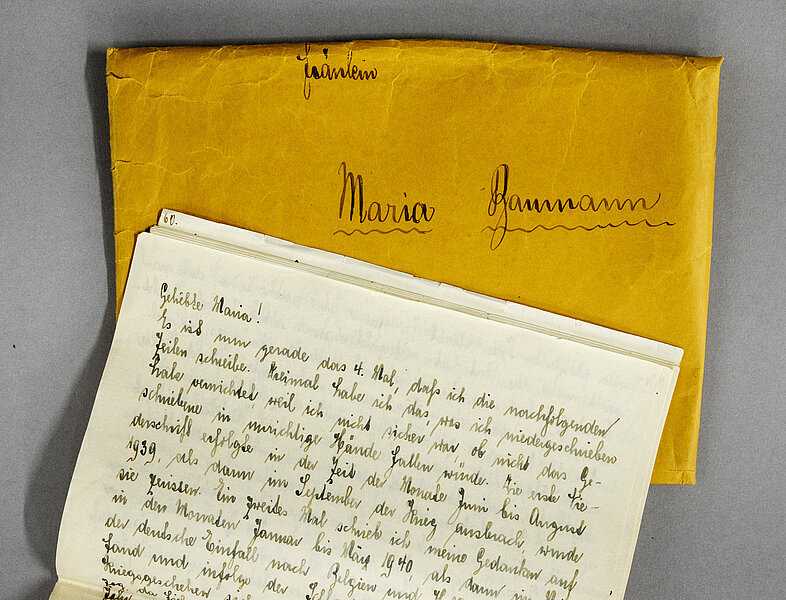 Fräulein
Maria Baumann
60.
Geliebte Maria!
Es ist nun gerade das 4. Mal, daß ich die nachfolgenden
Zeilen schreibe. Dreimal habe ich das, was ich niedergeschrieben
habe vernichtet, weil ich nicht sicher war, ob nicht das Ge-
schriebene in unrichtige Hände fallen würde. Die erste Nie-
derschrift erfolgte in der Zeit der Monate Juni bis August
1939, als dann im September der Krieg ausbrach, wurde
sie zerstört. Ein zweites Mal schrieb ich meine Gedanken auf
in den Monaten Januar bis März 1940, als dann im
der deutsche Einfall nach Belgien und
land und infolge der
Kriegsgeschehen